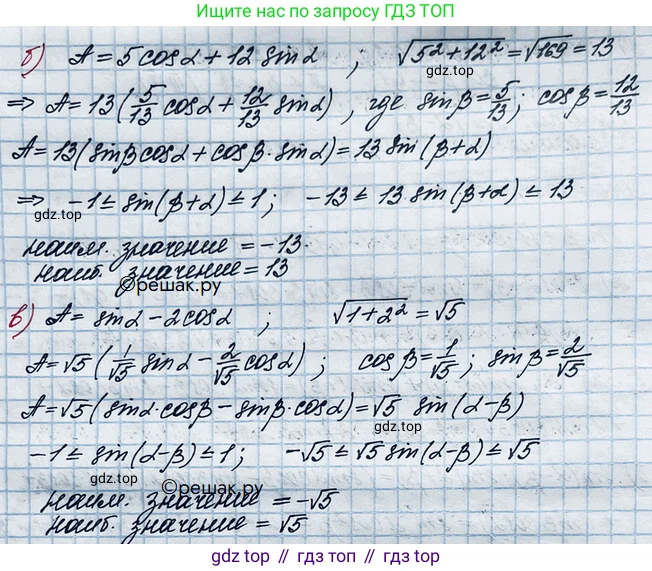 Ищите лучшее по запросу ГДЗ ТОП
б) A = 5 cosα + 12 sinα ; √(5² + 12²) = √169 = 13
gdz.top
⇒ A = 13(5/13 cosα + 12/13 sinα), где sinβ = 5/13; cosβ = 12/13
A = 13(sinβ cosα + cosβ·sinα) = 13 sin(β+α)
⇒ -1 ≤ sin(β+α) ≤ 1; -13 ≤ 13 sin(β+α) ≤ 13
gdz.top
gdz.top
наим. значение = -13.
наиб. значение = 13
©решак.ру
в) A = sinα - 2cosα ; √(1+2²) = √5
gdz.top
A = √5(1/√5 sinα - 2/√5 cosα); cosβ = 1/√5; sinβ = 2/√5
A = √5(sinα·cosβ - sinβ·cosα) = √5 sin(α-β)
gdz.top
-1 ≤ sin(α-β) ≤ 1; -√5 ≤ √5 sin(α-β) ≤ √5
gdz.top
©решак.ру
наим. значение = -√5
наиб. значение = √5
gdz.top // гдз.топ // gdz.top